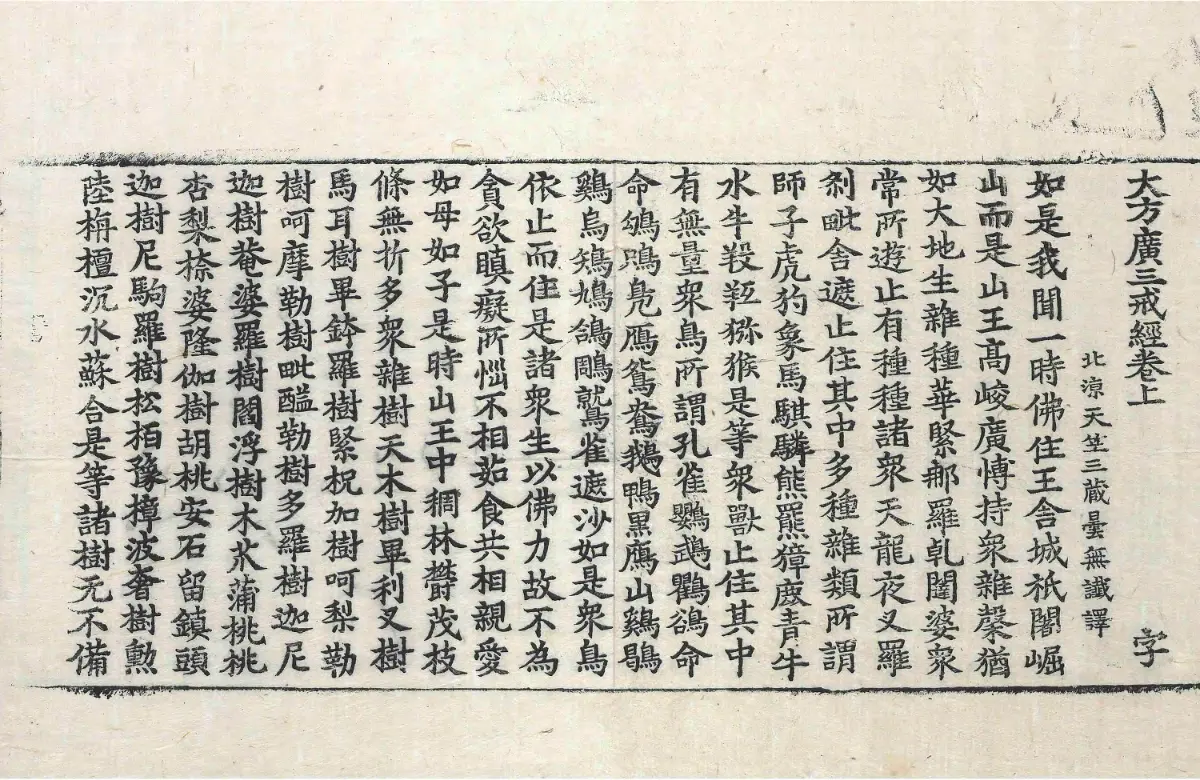 大方廣三戒經卷上 字
北涼天竺三藏曇無讖譯
如是我聞一時佛住王舍城祇闍崛
山而是山王高峻廣博持衆雜馨猶
如大地生雜種華緊那羅乹闥婆衆
常所遊止有種種諸衆天龍夜叉羅
剎毗舍遮止住其中多種雜類所謂
師子虎豹象馬騏驎熊羆獐鹿青牛
水牛羖羝猕猴是等衆獸止住其中
有無量衆鳥所謂孔雀鸚鵡鸜鵒命
命鴝鵅鳬鴈鴛鴦鵝鴨黒鷹山鷄鶡
鷄烏鵄鳩鴿鵰鷲雀遮沙如是衆鳥
依止而住是諸衆生以佛力故不為
貪欲瞋癡所惱不相茹食共相親愛
如母如子是時山王中稠林欝茂枝
條無折多衆雜樹天木樹畢利叉樹
馬耳樹畢鉢羅樹緊柷加樹呵梨勒
樹呵摩勒樹毗醯勒樹多羅樹迦尼
迦樹菴婆羅樹閻浮樹木氷蒲桃桃
杏梨㮈婆隆伽樹胡桃安石留鎮頭
迦樹尼駒羅樹松栢豫樟波奢樹勲
陸栴檀沉水蘇合是等諸樹无不備